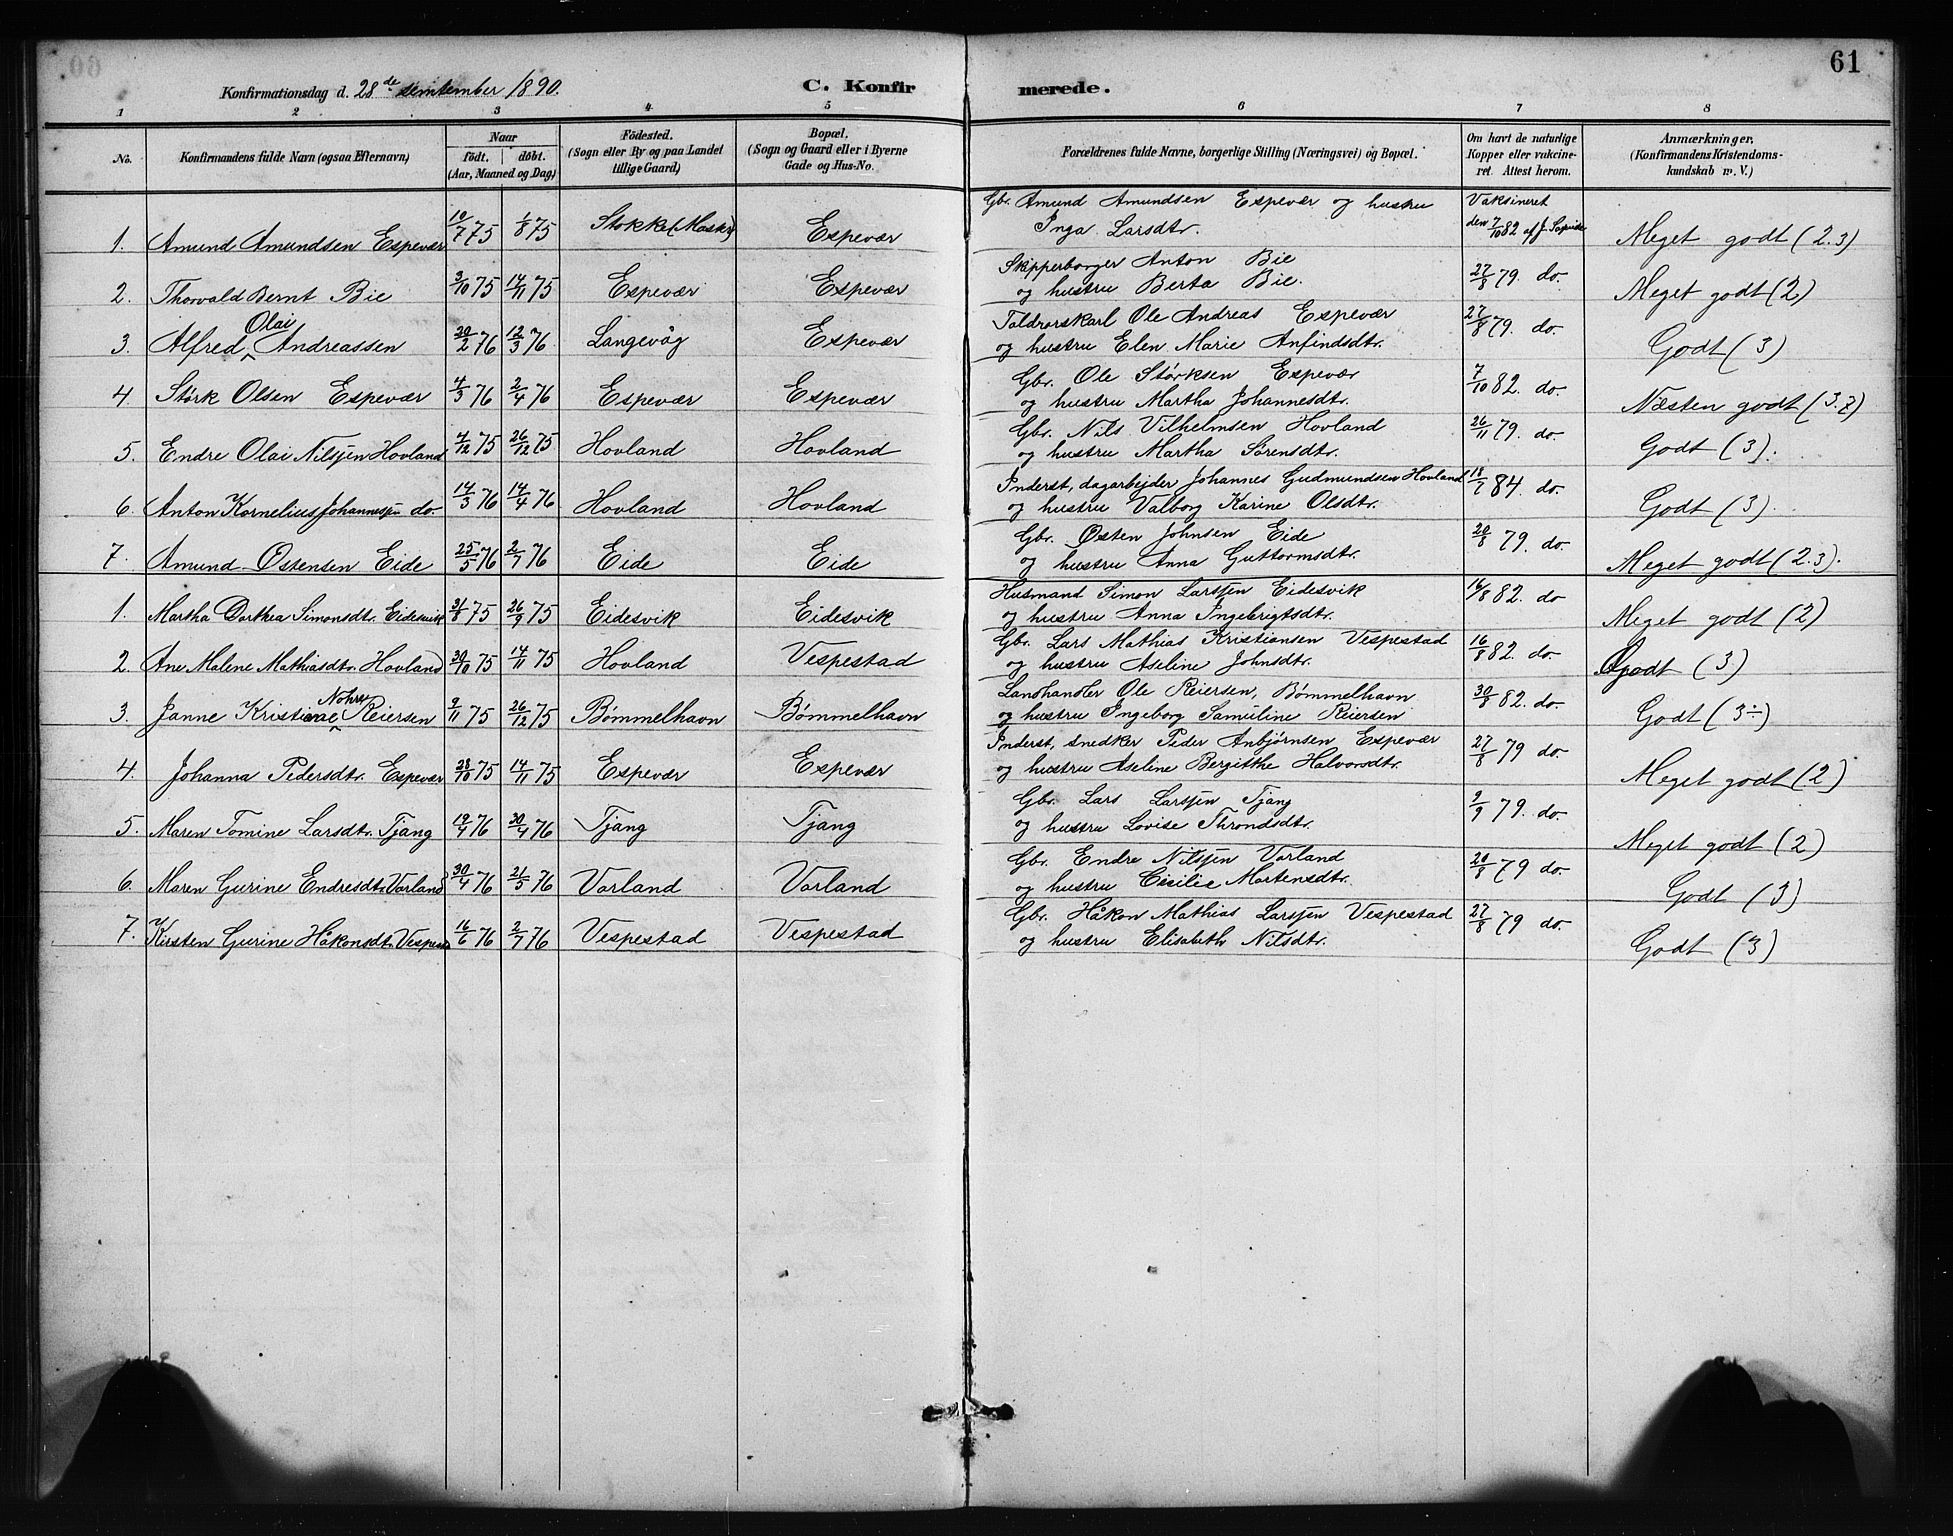 61
Konfirmationsdag d. 28de semtember 1890.
C. Konfirmerede.
1 2 3 4 5 6 7 8
No. Konfirmandens fulde Navn (ogsaa Efternavn) Naar födt. döbt. (Aar, Maaned og Dag) Födested. (Sogn eller By og paa Landet tillige Gaard) Bopæl. (Sogn og Gaard eller i Byerne Gade og Hus-No. Forældrenes fulde Navne, borgerlige Stilling (Næringsvei) og Bopæl. Om havt de naturlige Kopper eller vakcineret. Attest herom. Anmærkninger, (Konfirmandens Kristendomskundskab m. V.)
1. Amund Amundsen Espevær 10/7 75 1/8 75 Stokke Espevær Gbr. Amund Amundsen Espevær og hustru Inga Larsdtr. Vaksineret den 7/10 82 af J. Meget godt (2.3)
2. Thorvald Bernt Bie 3/10 75 14/11 75 Espevær Espevær Skipperborger Anton Bie og hustru Berta Bie. 27/8 79. do. Meget godt (2)
3. Alfred Olai Andreassen 20/2 76 12/3 76 Langevåg Espevær Ole Andreas Espevær og hustru Elen Marie Anfindsdtr. 27/8 79. do. Godt (3)
4. Störk Olsen Espevær 4/3 76 2/4 76 Espevær Espevær Gbr. Ole Störksen Espevær og hustru Martha Johannesdtr. 7/10 82. do. Næsten godt
5. Endre Olai Nilssen Hovland 4/12 75 26/12 75 Hovland Hovland Gbr. Nils Vilhelmsen Hovland og hustru Martha Sörensdtr. 26/11 79. do. Godt (3).
6. Anton Kornelius Johannessen do. 14/3 76 14/4 76 Hovland Hovland Inderst, dagarbejder Johannes Gudmundsen Hovland og hustru Valborg Karine Olsdtr. 84. do. Godt (3).
7. Amund Østensen Eide 25/5 76 2/7 76 Eide Eide Gbr. Østen Johnsen Eide og hustru Anna Guttormsdtr. 20/8 79. do. Meget godt (2.3).
1. Martha Dorthea Simonsdtr. Eidesvik 31/8 75 26/9 75 Eidesvik Eidesvik Husmand Simon Larssen Eidesvik og hustru Anna Ingebrigtsdtr. 16/8 82. do Meget godt (2)
2. Ane Malene Mathiasdtr. Hovland 30/10 75 14/11 75 Hovland Vespestad Gbr. Lars Mathias Kristiansen Vespestad og hustru Aseline Johnsdtr. 16/8 82. do. Godt (3)
3. Janne Kristine Reiersen 9/11 75 26/12 75 Bømmelhavn Bømmelhavn Landhandler Ole Reiersen, Bømmelhavn og hustru Ingeborg Samuline Reiersen 30/8 82. do. Godt (3÷)
4. Johanna Pedersdtr. Espevær 28/10 75 14/11 75 Espevær Espevær Inderst, snedker Peder Anbjørnsen Espevær og hustru Aseline Bergitthe Halvorsdtr. 27/8 79 do. Meget godt (2)
5. Maren Tomine Larsdtr. Tjang 19/4 76 30/4 76 Tjang Tjang Gbr. Lars Larssen Tjang og hustru Lovise Throndsdtr. 9/9 79. do. Meget godt (2)
6. Maren Gurine Endresdtr. Vorland 30/4 76 21/5 76 Vorland Vorland Gbr. Endre Nilssen Vorland og hustru Cicilie Mortensdtr. 20/8 79 do. Godt (3)
7. Kirsten Gurine Håkonsdtr. 16/6 76 2/7 76 Vespestad Vespestad Gbr. Håkon Mathias Larssen Vespestad og hustru Elisabeth Nilsdtr. 27/8 79 do. Godt (3)